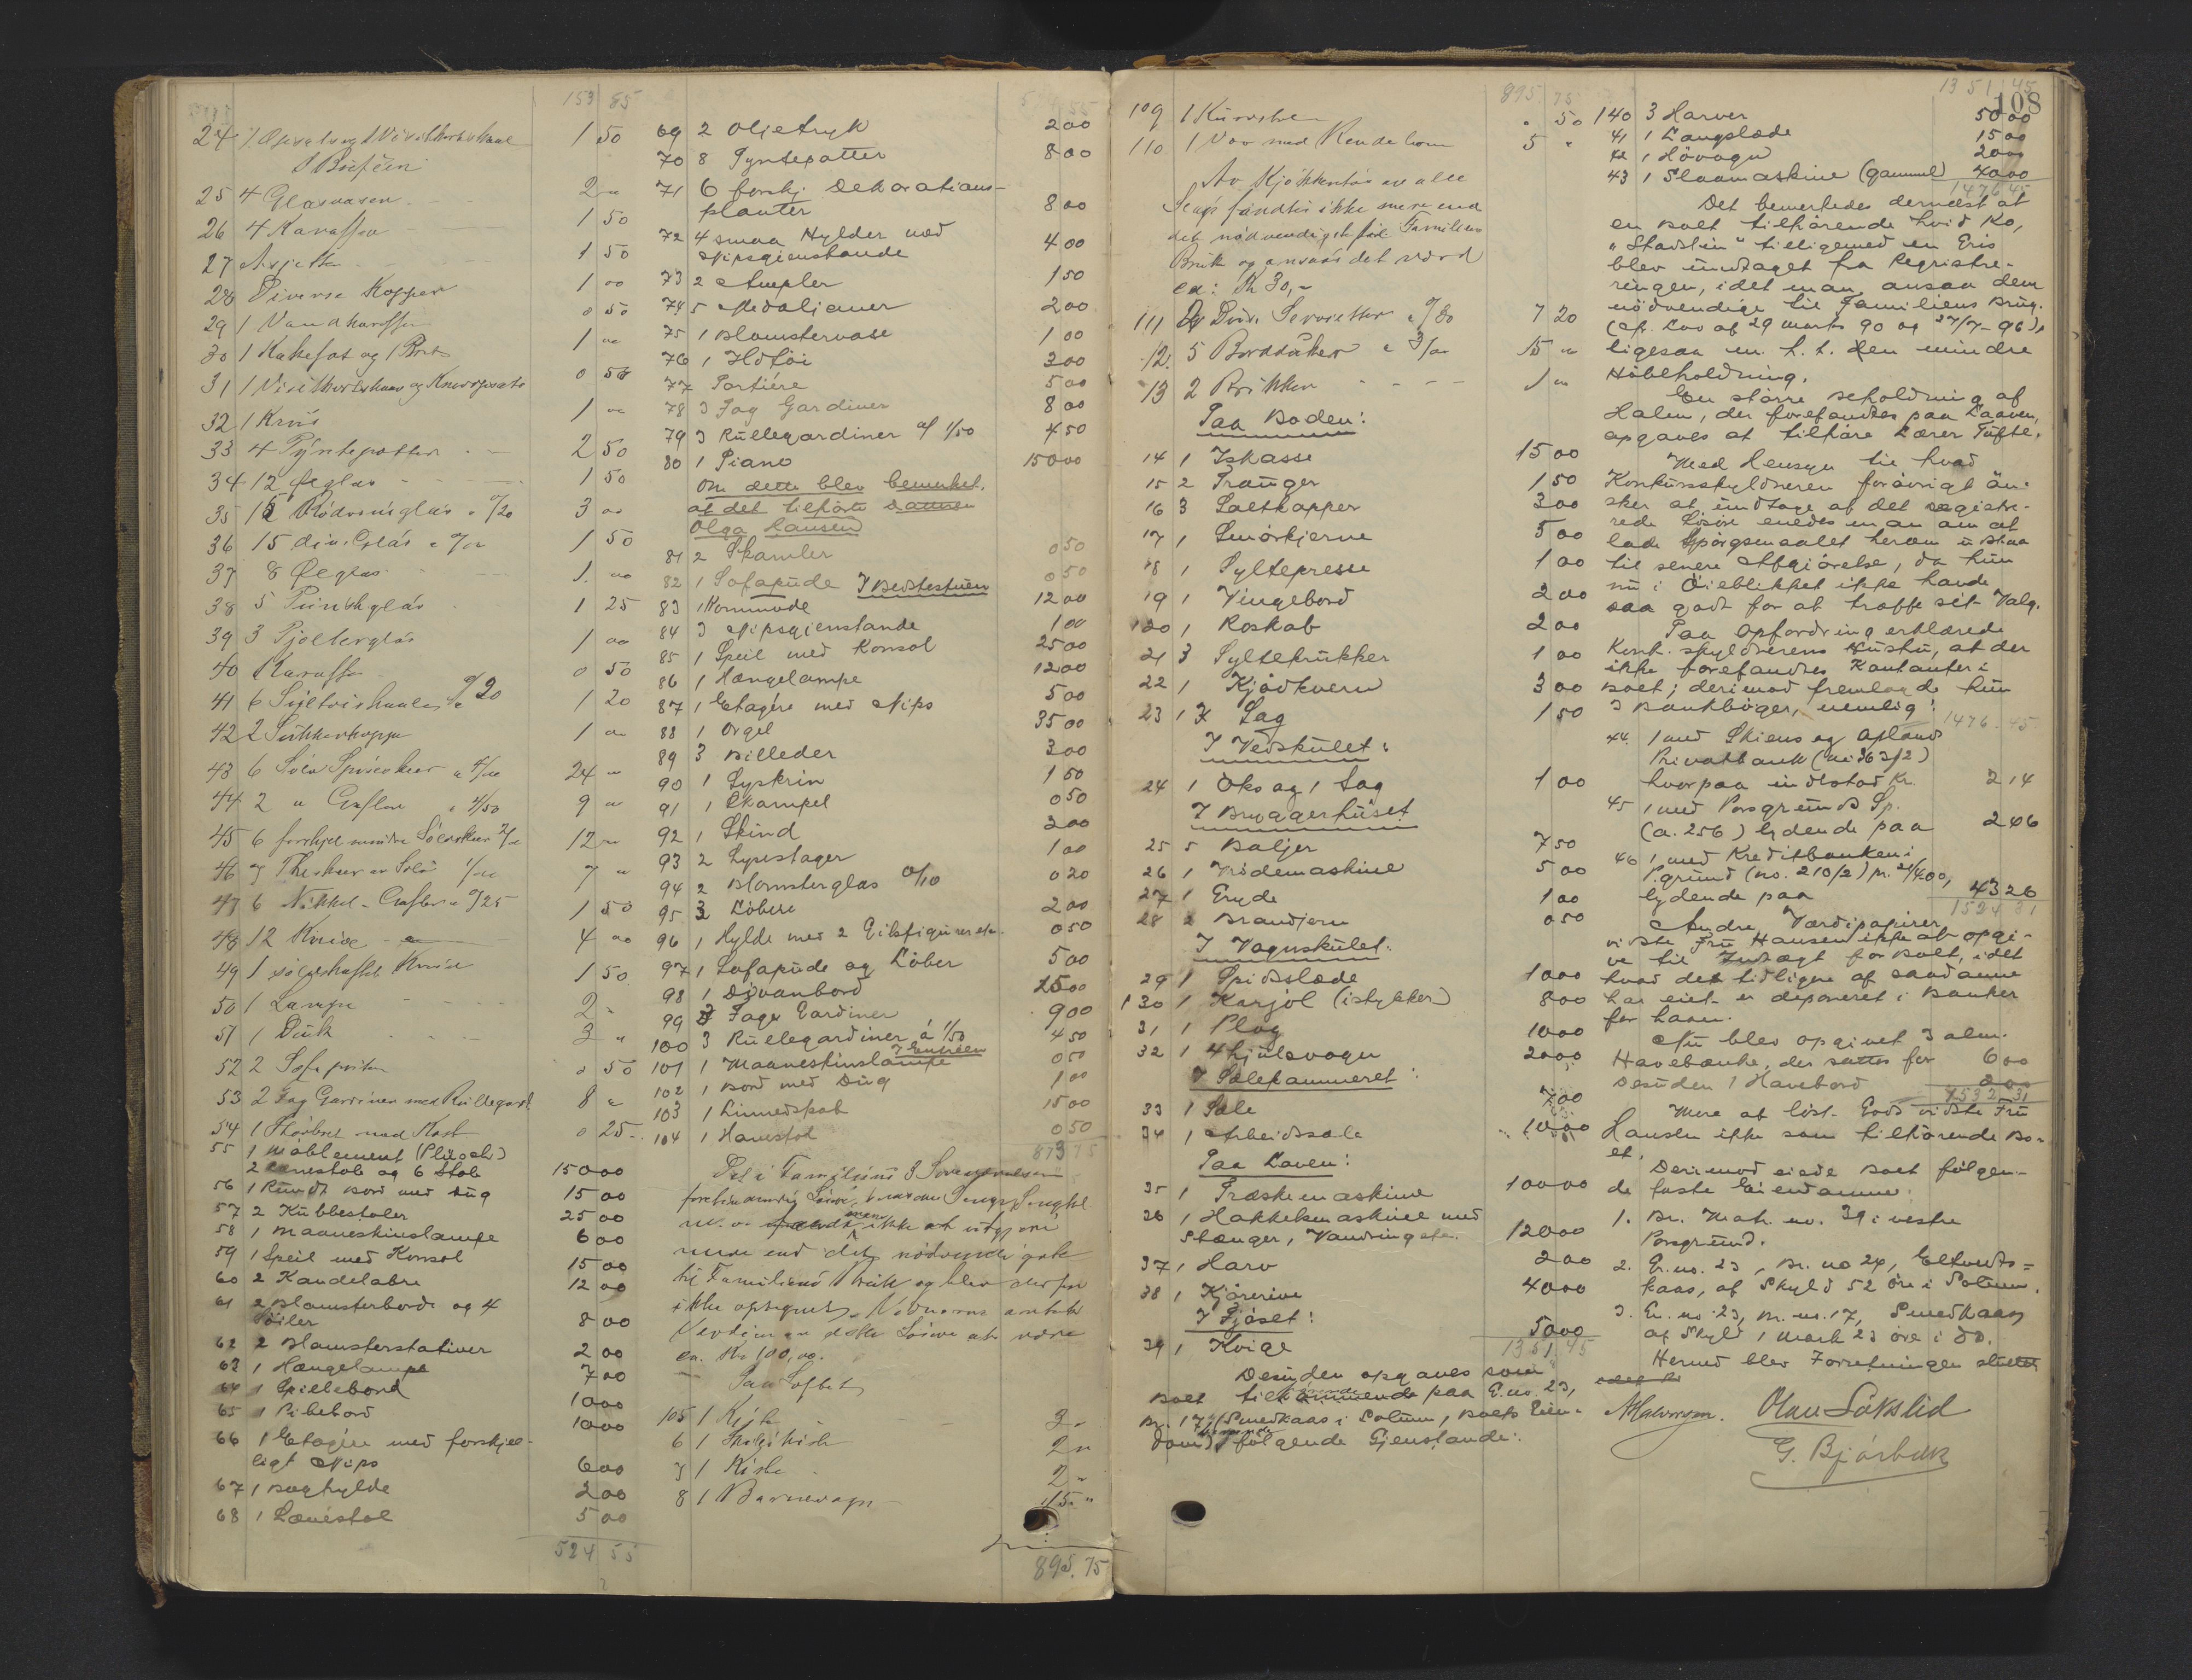 153 85
24 1
I Büfeen 1 50
25 4 Glasvasen 2 "
26 4 Karafler 1 50
27 Asjetter 1 50
28 Diverse Kopper 1 00
29 1 Vandkaraffel 0 50
30 1 Kakefat og 1 Bret 1 "
31 1 Visitkortskaal og 0 50
32 1 Krus 1 "
33 4 Pyntepotter 2 50
34 12 Ølglas 1 50
35 18 Rødvinsglas a 0/20 3 00
36 15 div. Glas 1 50
37 8 Ølglas 1 00
38 5 Punshglas 1 25
39 3 Pjolterglas 1 00
40 Karaffler 0 50
41 6 a 0/20 1 20
42 2 Sukkerkopper 1 00
43 6 Sølv Spiseskeer a 4/00 24 "
44 2 " Gafler a 4/50 9 "
45 6 forskjel mindre Sølvskeer 2/00 12 "
46 7 Theskeer av Sølv 1/00 7 "
47 6 Nikkel-Gafler a 0/25 1 50
48 12 Knive 4 00
49 1 sølvskaftet Kniv 1 50
50 1 Lampe 2 "
51 1 Duk 3 "
52 2 Sofaputer 0 50
53 2 Fag Gardiner med Rullegard. 8 "
54 1 0 25
55 1 Møblement (Plüsch)
2 Lænestole og 6 Stole 150 00
56 1 Rundt Bord med Dug 15 00
57 2 Kubbestoler 25 00
58 1 Maaneskinslampe 6 00
59 1 Speil med Konsol 15 00
60 2 Kandelabre 12 00
61 2 Blomsterborde og 4
Söiler 8 00
62 2 Blomsterstativer 2 00
63 1 Hængelampe 7 00
64 1 Spillebord 10 00
65 1 Pibebord 10 00
66 1 Etagére med forskjel-
ligt Nips 6 00
67 1 Boghylde 2 00
68 1 Lænestol 5 00
524 55
69 2 Oljetryk 2 00
70 8 Pyntepotter 8 00
71 6 forskj. Dekorations-
planter 8 00
72 4 smaa Hylder med
Nipsgjenstande 4 00
73 2 Ampler 1 50
74 5 Medaljoner 2 00
75 1 Blomstervase 1 00
76 1 3 00
77 Portiére 5 00
78 3 Fag Gardiner 8 00
79 3 Rullegardiner af 1/50 4 50
80 1 Piano 150 00
Om dette blev bemerket,
at det tilhörte Datteren
Olga Hansen
81 2 Skamler 0 50
82 1 Sofapude I Bedstestuen 0 50
83 1 Kommode 12 00
84 3 Nipsgjenstande 1 00
85 1 Speil med Konsol 25 00
86 1 Hængelampe 12 00
87 1 Etagére med Nips 5 00
88 1 Orgel 35 00
89 3 Billeder 3 00
90 1 Syskrin 1 50
91 1 Skampel 0 50
92 1 Skind 3 00
93 2 Lysestager 1 00
94 2 Blomsterglas 0/10 0 20
95 3 Löbere 2 00
96 1 Hylde med 2 Gibsfigurer etc. 0 50
97 1 Sofapude og Löber 5 00
98 1 Divanbord 25 00
99 3 Fage Gardiner 9 00
100 3 Rullegardiner á 1/50 4 50
I Entréen
101 1 Maaneskinslampe 0 50
102 1 Bord med Dug 1 00
103 1 Linnedskab 15 00
104 1 Havestol 0 50
873 75
Det i Familiens 3 Soveværelser
ikke at utgjøre
mere end det nødvendigste
til Familiens Bruk og blev derfor
ikke optegnet. Vidnerne antok
Verdien av dette Løsøre at være
ca. Kr 100,00.
Paa Loftet
105 1 Kiste 3 "
6 1 2 "
7 1 Kiste 2 "
8 1 Barnevogn 15 "
895,75
895 75
109 1 " 50
110 1 5 "
Av Kjøkkentøi av alle
Slags fandtes ikke mere end
det nødvendigste for Familiens
Bruk og ansaaes det værd
ca: Kr 30,-
111 Div. Servietter a 0/80 7 20
12. 5 Bordduker a 3/00 15 "
13 2 Brikker 1 "
Paa Boden:
14 1 Iskasse 15 00
15 2 Trauger 1 50
16 3 Saltkopper 3 00
17 1 Smörkjerne 5 00
18 1 Syltepresse 1 00
19 1 Vingebord 2 00
120 1 Roskab 2 00
21 3 Syltekrukker 1 00
22 1 Kjødkvern 3 00
23 1 Sag 1 50
I Vedskulet:
24 1 Öks og 1 Sag 1 00
I Bryggerhuset
25 5 Baljer 7 50
26 1 Vridemaskine 5 00
27 1 Gryde 1 00
28 2 Brandjern 0 50
I Vognskulet:
29 1 Spidsslæde 10 00
130 1 Karjol (istykker) 8 00
31 1 Plog 10 00
32 1 4hjulsvogn 20 00
I Selekammeret:
33 1 Sele 7 00
34 1 Arbeidssele 10 00
Paa Laven:
35 1 Træskemaskine 100 00
36 1 Hakkelsmaskine med
Stænger, Vandring etc. 120 00
37 1 Harv 2 00
38 1 Kjörerive 40 00
I Fjöset:
39 1 Kvige 50 00
1351 45
Desuden opgaves som
Boet tilhörende paa G.no. 23,
Br. 17 (Smedkaas i Solum, Boets Eien-
dom) følgende Gjenstande:
1351 45
108
140 3 Harver 50 00
41 1 Langslæde 15 00
42 1 Hövogn 20 00
43 1 Slaamaskine (gammel) 40 00
1476 45
Det bemerkedes dernæst at
en Boet tilhörende hvid Ko,
"Stadslin" tilligemed en Gris
blev undtaget fra Registre-
ringen, idet man ansaa dem
nödvendige til Familiens Brug.
(cf. Lov af 29 marts 90 og 27/7-96),
ligesaa m. h. t. den mindre
Höbeholdning.
En större Beholdning af
Halm, der forefandtes paa Laaven,
opgaves at tilhöre Lærer Tufte.
Med Hensyn til hvad
Konkursskyldneren forövrigt ön-
sker at undtage af det registre-
rede Lösöre enedes man om at
lade Spörgsmaalet herom udstaa
til senere Afgjörelse, da hun
nu i Öieblikket ikke havde
saa godt for at træffe sit Valg.
Paa Opfordring erklærede
Konk. skyldnerens Hustru, at der
ikke forefandtes Kontanter i
Boet; derimod fremlagde hun
3 Bankböger, nemlig: 1476.45
44. 1 med Skiens og Oplands
Privatbank
hvorpaa indestod Kr. 2 14
45 1 med Porsgrunds Sp.
(a. 256) lydende paa 2 46
46 1 med Kreditbanken i
P.grund (no. 210/2)
lydende paa 43 26
1524 31
Andre Værdipapirer
vidste Fru Hansen ikke at opgi-
ve til Indtægt for Boet, idet
hvad det tidligere af saadanne
har eiet er deponeret i Banker
for Laan.
Nu blev opgivet 3 alm.
Havebænke, der sattes for 6 00
Desuden 1 Havebord 2 00
1532 31
Mere af löst Gods vidste Fru
Hansen ikke som tilhörende Bo-
et.
Derimod eiede Boet fölgen-
de faste Eiendomme:
1. Br. Matr. no. 39 i vestre
Porsgrund.
2. Gr. no. 23, Br. no 24, Eltvedts=
kaas, af Skyld 52 öre i Solum.
3. Gr. no. 23, Br. no. 17, Smedkaas
af Skyld 1 Mark 23 öre i do.
Hermed blev Forretningen sluttet
Olav Lakslid
G. Bjórbæk